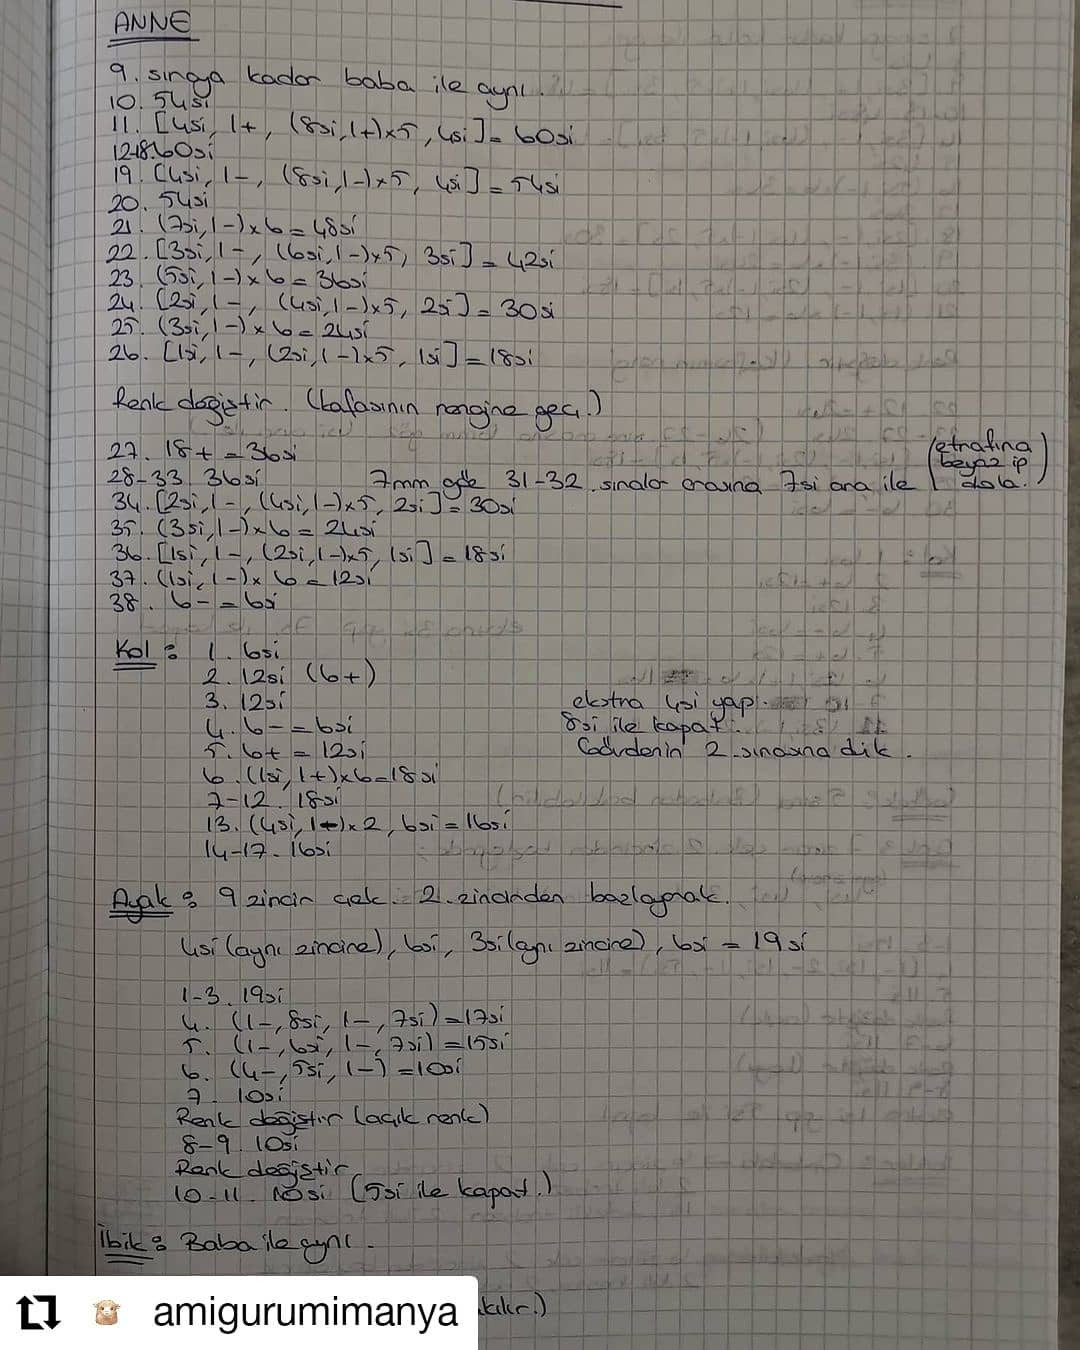 ANNE
9. sıraya kadar baba ile aynı.
10. 54si
11. [4si, 1+, (8si,1+)x5, 4si] = 60si
12-18. 60si
19. [4si, 1-, (8si,1-)x5, 4si] = 54si
20. 54si
21. (7si,1-)x6 = 48si
22. [3si, 1-, (6si,1-)x5, 3si] = 42si
23. (5si,1-)x6 = 36si
24. [2si, 1-, (4si,1-)x5, 2s] = 30si
25. (3si,1-)x6 = 24si
26. [1si, 1-, (2si,1-)x5, 1si] = 18si
Renk değiştir. (kafasının rengine geç.)
27. 18+ = 36si
28-33. 36si 7mm göz 31-32. sıralar arasına 7si ara ile (etrafına beyaz ip dola.)
34. [2si, 1-, (4si,1-)x5, 2si] = 30si
35. (3si,1-)x6 = 24si
36. [1si, 1-, (2si,1-)x5, 1si] = 18si
37. (1si, 1-)x6 = 12si
38. 6- = 6si
Kol : 1. 6si
2. 12si (6+)
3. 12si
4. 6- = 6si
5. 6+ = 12si
6. (1si, 1+)x6=18si
7-12. 18si
13. (4si, 1-)x2, 6si = 16si
14-17. 16si
ekstra 4si yap.
8si ile kapat.
Gövdenin 2. sırasına dik.
Ayak : 9 zincir çek. 2. zincirden başlayarak.
4si (aynı zincire), 6si, 3si (aynı zincire), 6si = 19si
1-3. 19si
4. (1-, 8si, 1-, 7si) = 17si
5. (1-, 6si, 1-, 7si) = 15si
6. (4-, 5si, 1-) = 10si
7. 10si
Renk değiştir (açık renk)
8-9. 10si
Renk değiştir
10-11. 10si (5si ile kapat.)
İbik : Baba ile aynı.
amigurumimanya